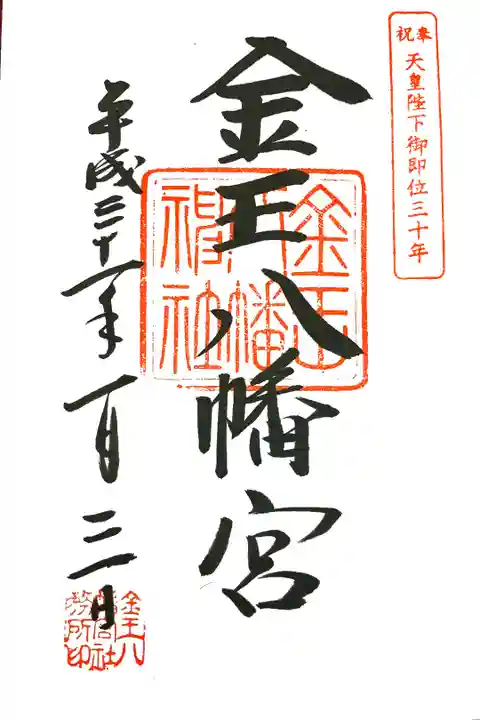 奉祝 天皇陛下御即位三十年
金王八幡宮
金王八幡神社
平成三十一年一月三日
金王八幡宮社務所印